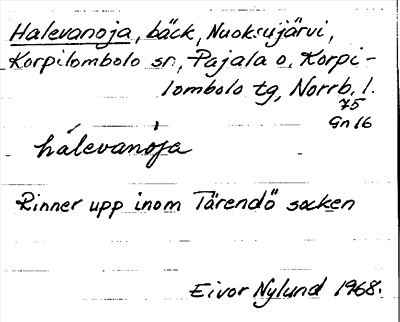 Halevanoja, bäck, Nuoksujärvi,
Korpilombolo sn, Pajala o. Korpi-
lombolo tg, Norrb. l.
75
Gn 16
hálevanòja
Rinner upp inom Tärendö socken
Eivor Nylund 1968.